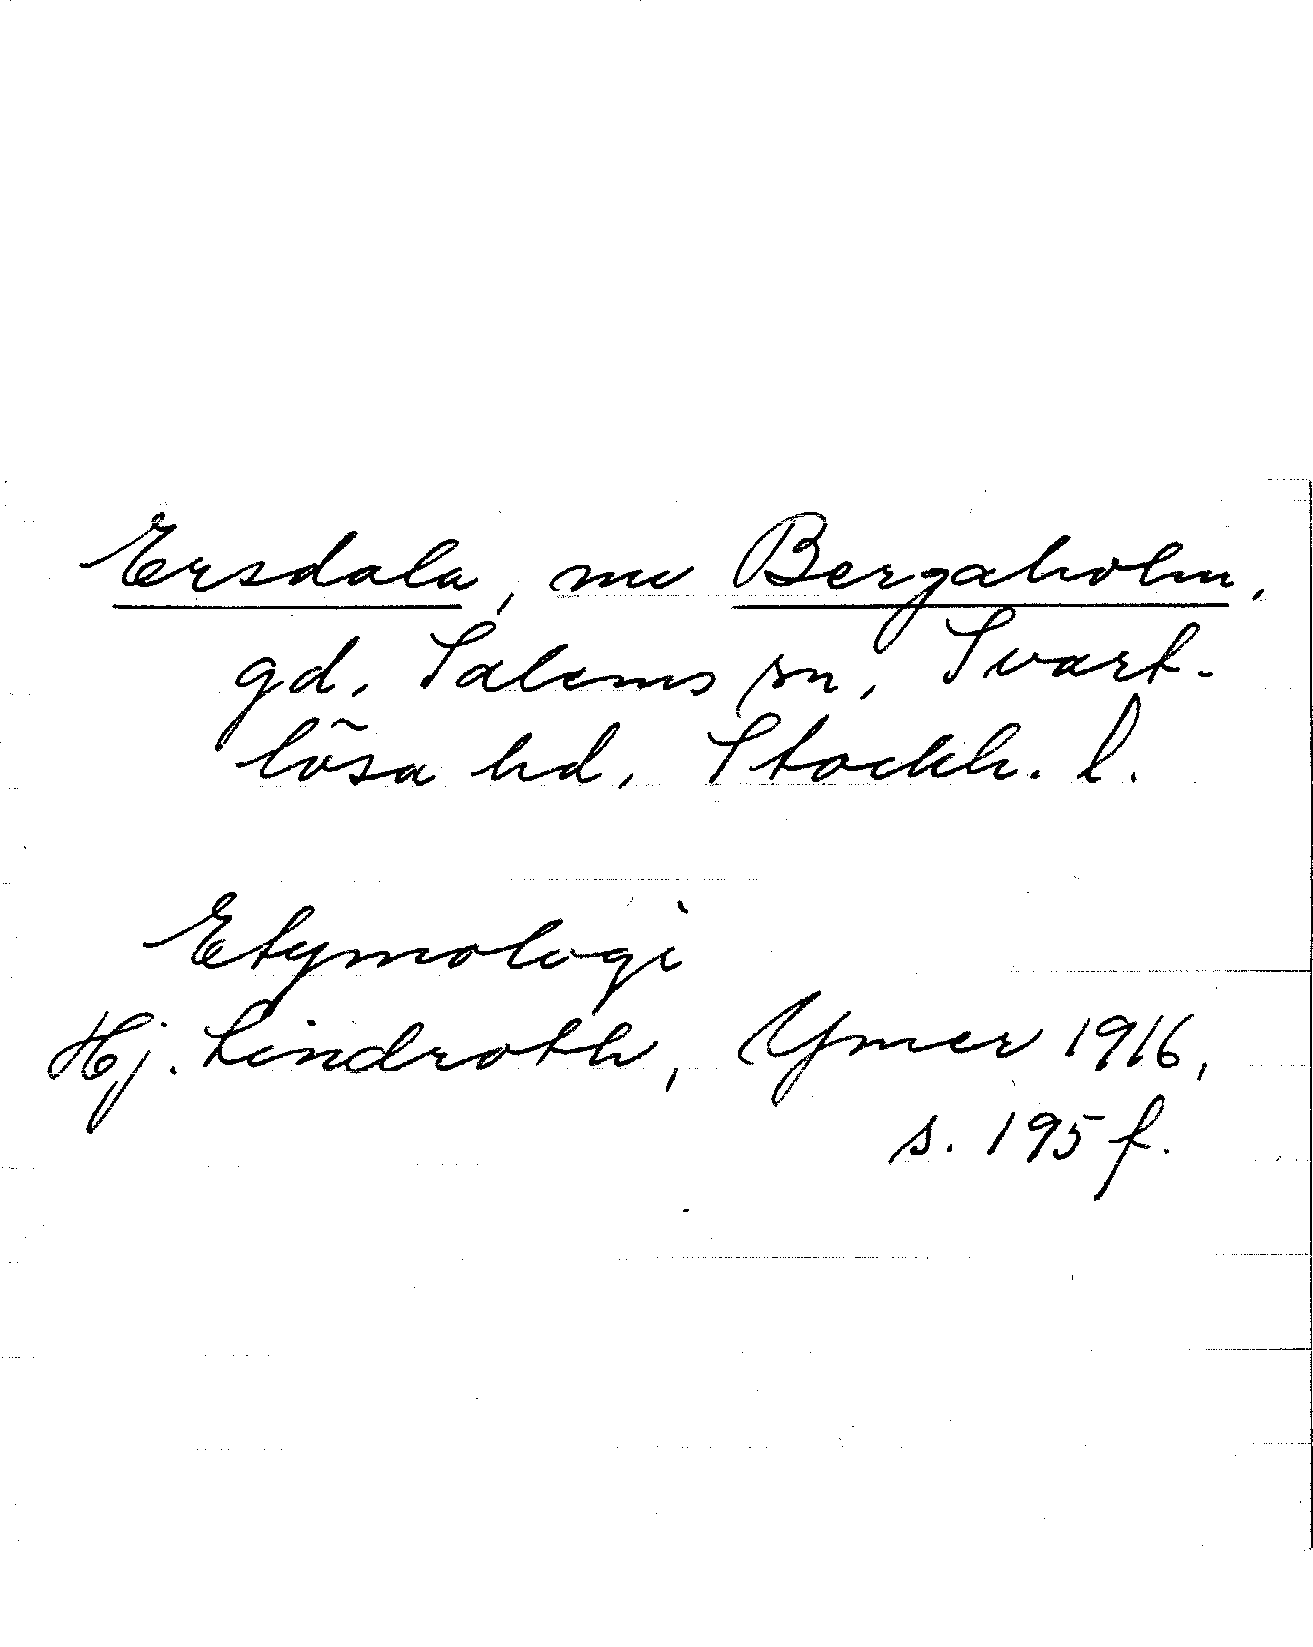 Ersdala, nu Bergaholm,
gd, Salems sn, Svart-
lösa hd, Stockh. l.
Etymologi
Hj. Lindroth, Ymer 1916,
s. 195 f.